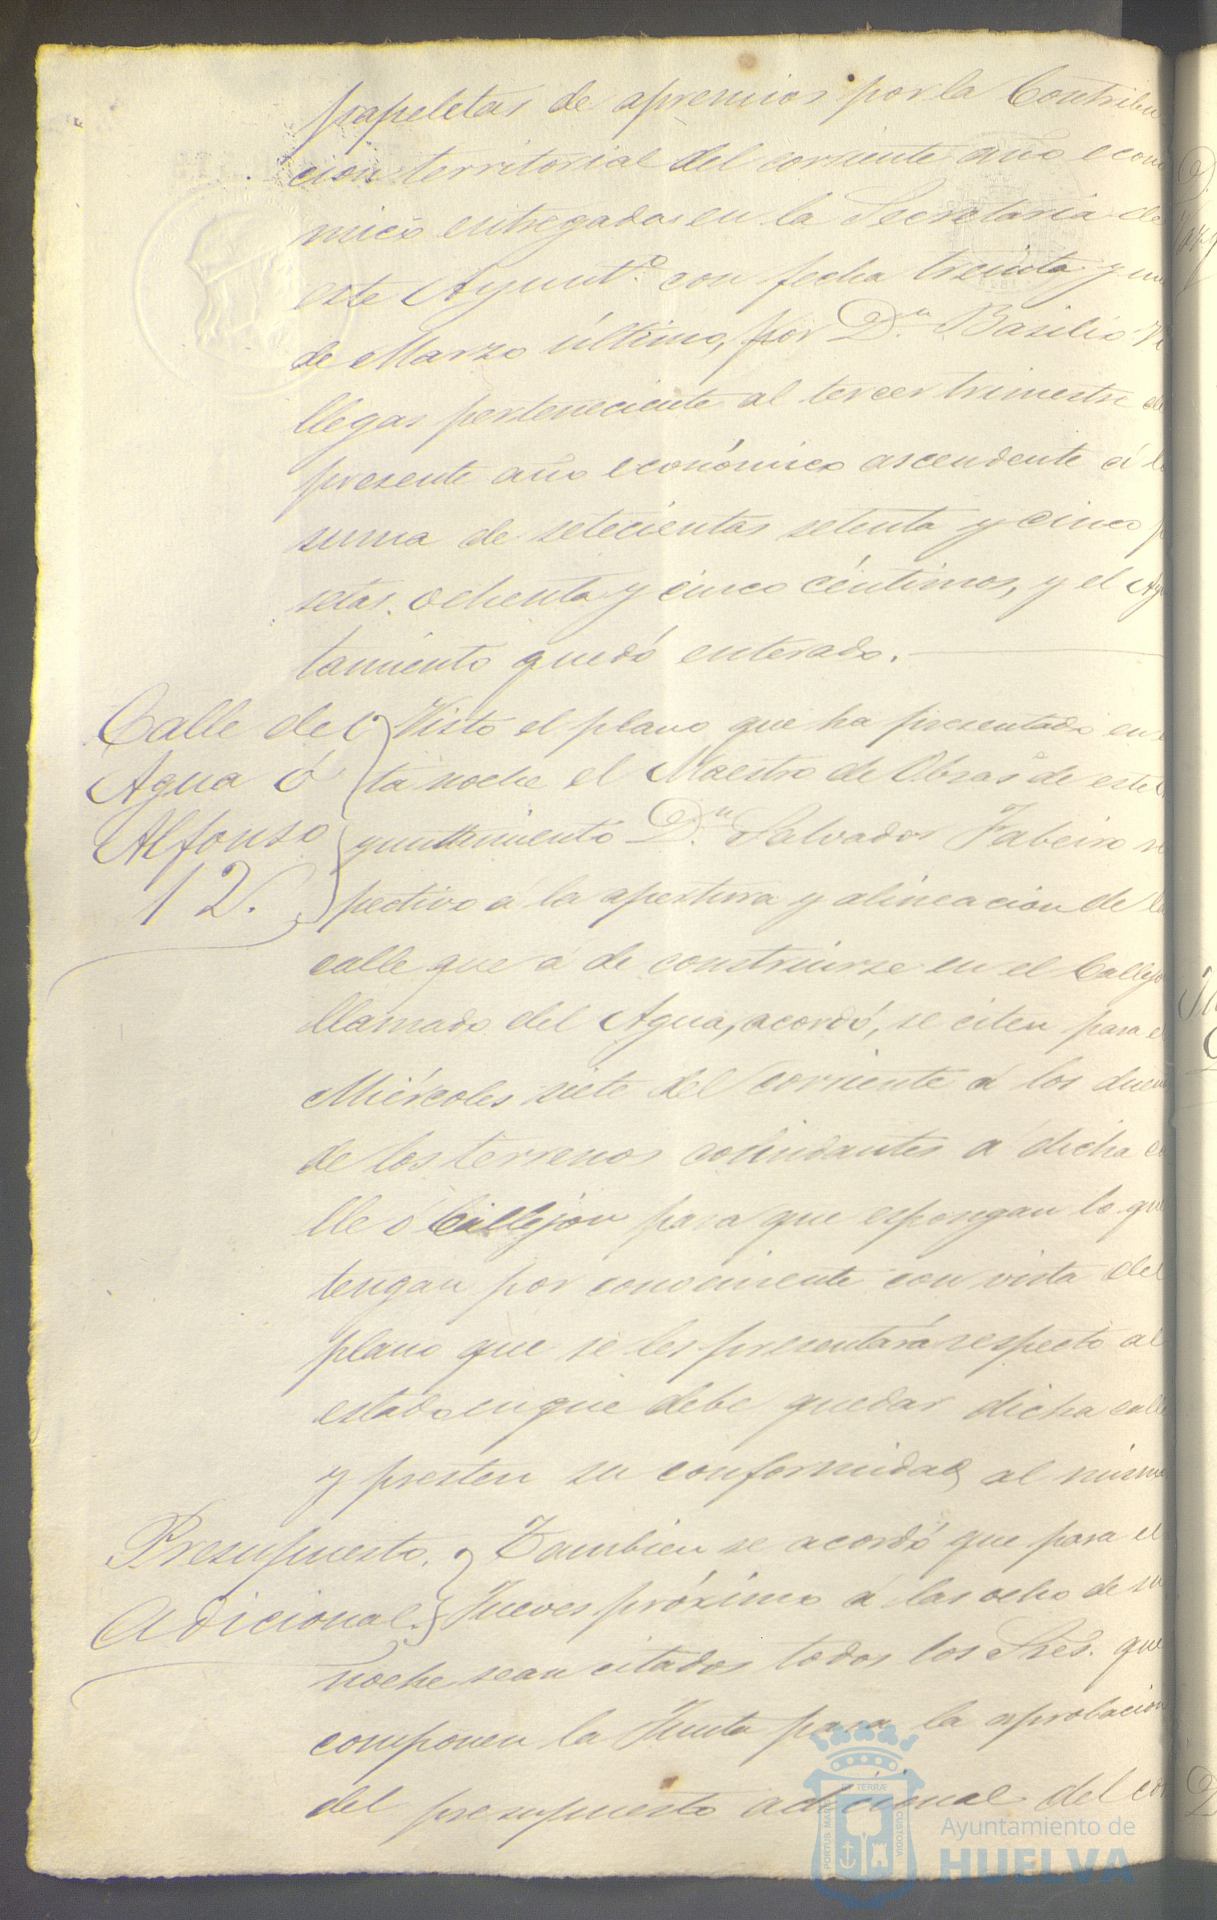 papeletas de apremios por la Contribu
cion territorial del corriente año econo
mico entregadas en la Secretaria de
este Ayuntº. con fecha treinta y un
de Marzo último, por Dn. Basilio Vi
llegas perteneciente al tercer trimestre de
presente año económico ascendente á l
suma de setecientas setenta y cinco p
setas ochenta y cinco céntimos, y el Ayu
tamiento quedó enterado.
Calle del
Agua ó
Alfonso
12.
Visto el plano que ha presentado en
ta noche el Maestro de Obras de este
yuntamiento Dn. Salvador Fabeiro re
pectivo á la apertura y alineacion de la
calle que á de construirse en el Callejo
llamado del Agua, acordó, se citen para e
Miércoles siete del corriente á los dueñ
de los terrenos colindantes á dicha ca
lle ó Callejón para que espongan lo que
tengan por conveniente con vista del
plano que se les presentará respecto al
estado en que debe quedar dicha calle
y presten su conformidad al mismo
Presupuesto
Adicional.
Tambien se acordó que para el
Jueves próximo á las ocho de su
noche sean citados todos los Sres. que
componen la Junta para la aprobacion
del presupuesto adicional del cor
PORTUS MARIS
ET TERRÆ
CUSTODIA
Ayuntamiento de
HUELVA